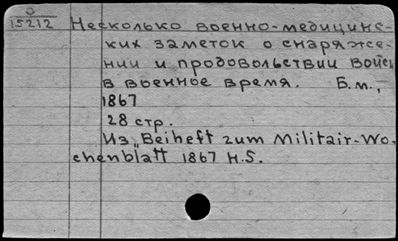 О
15212
Несколько военно-медицинс-
ких заметок о снаряже-
нии и продовольствии войск
в военное время. Б.м.,
1867
28 стр.
Из „Beiheft zum Militair-Wo-
chenblatt 1867 H.5.